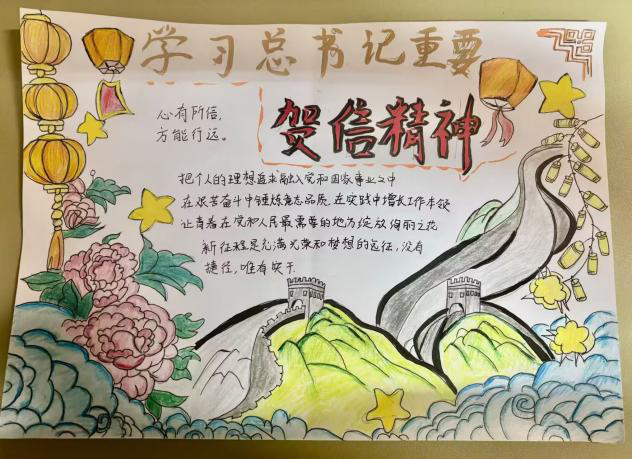 学习总书记重要
贺信精神
心有所信,
方能行远。
把个人的理想追求融入党和国家事业之中
在艰苦奋斗中锤炼意志品质,在实践中增长工作本领
让青春在党和人民最需要的地方绽放绚丽之花
新征程是充满光荣和梦想的远征,没有
捷径,唯有实干